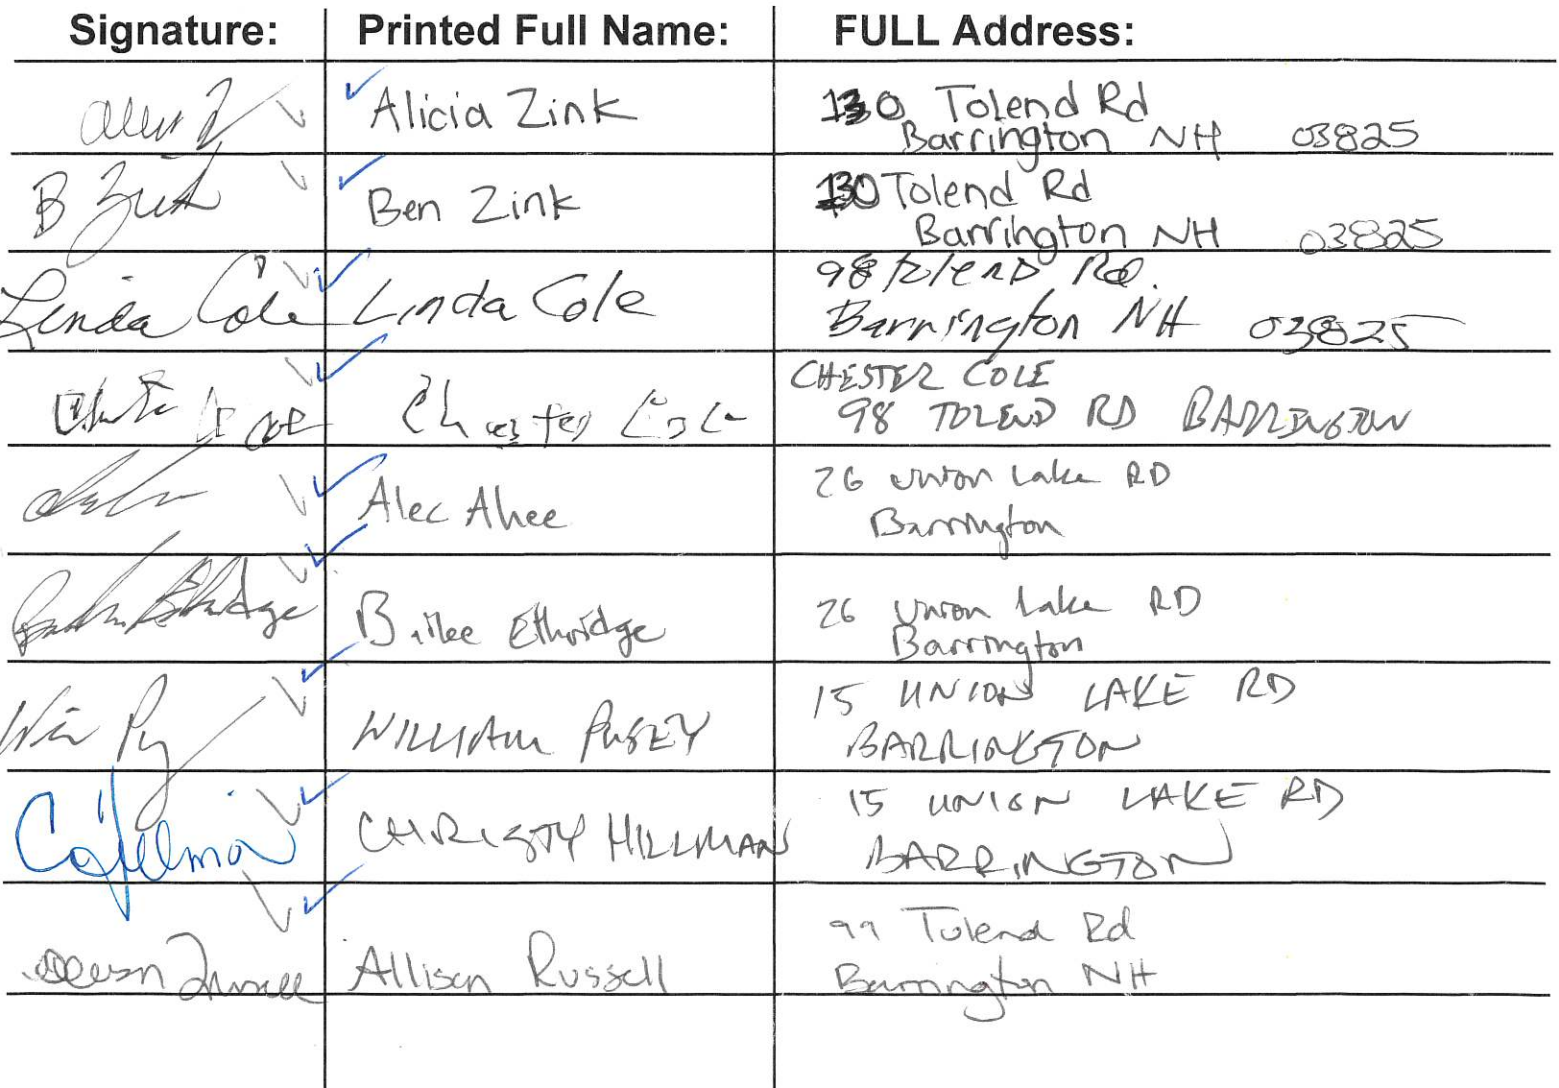 Signature: Printed Full Name: FULL Address:
Alicia Zink 130 Tolend Rd
Barrington NH 03825
B Zink Ben Zink 130 Tolend Rd
Barrington NH 03825
98 Tolend Rd.
Linda Cole Linda Cole Barrington NH 03825
CHESTER COLE
Chester Cole 98 TOLEND RD BARRINGTON
Alec Ahee 26 Union Lake RD
Barrington
Bailee Ethridge 26 Union Lake RD
Barrington
WILLIAM PUSEY 15 UNION LAKE RD
BARRINGTON
CHRISTY HILLMAN 15 UNION LAKE RD
BARRINGTON
99 Tolend Rd
Allison Russell Barrington NH